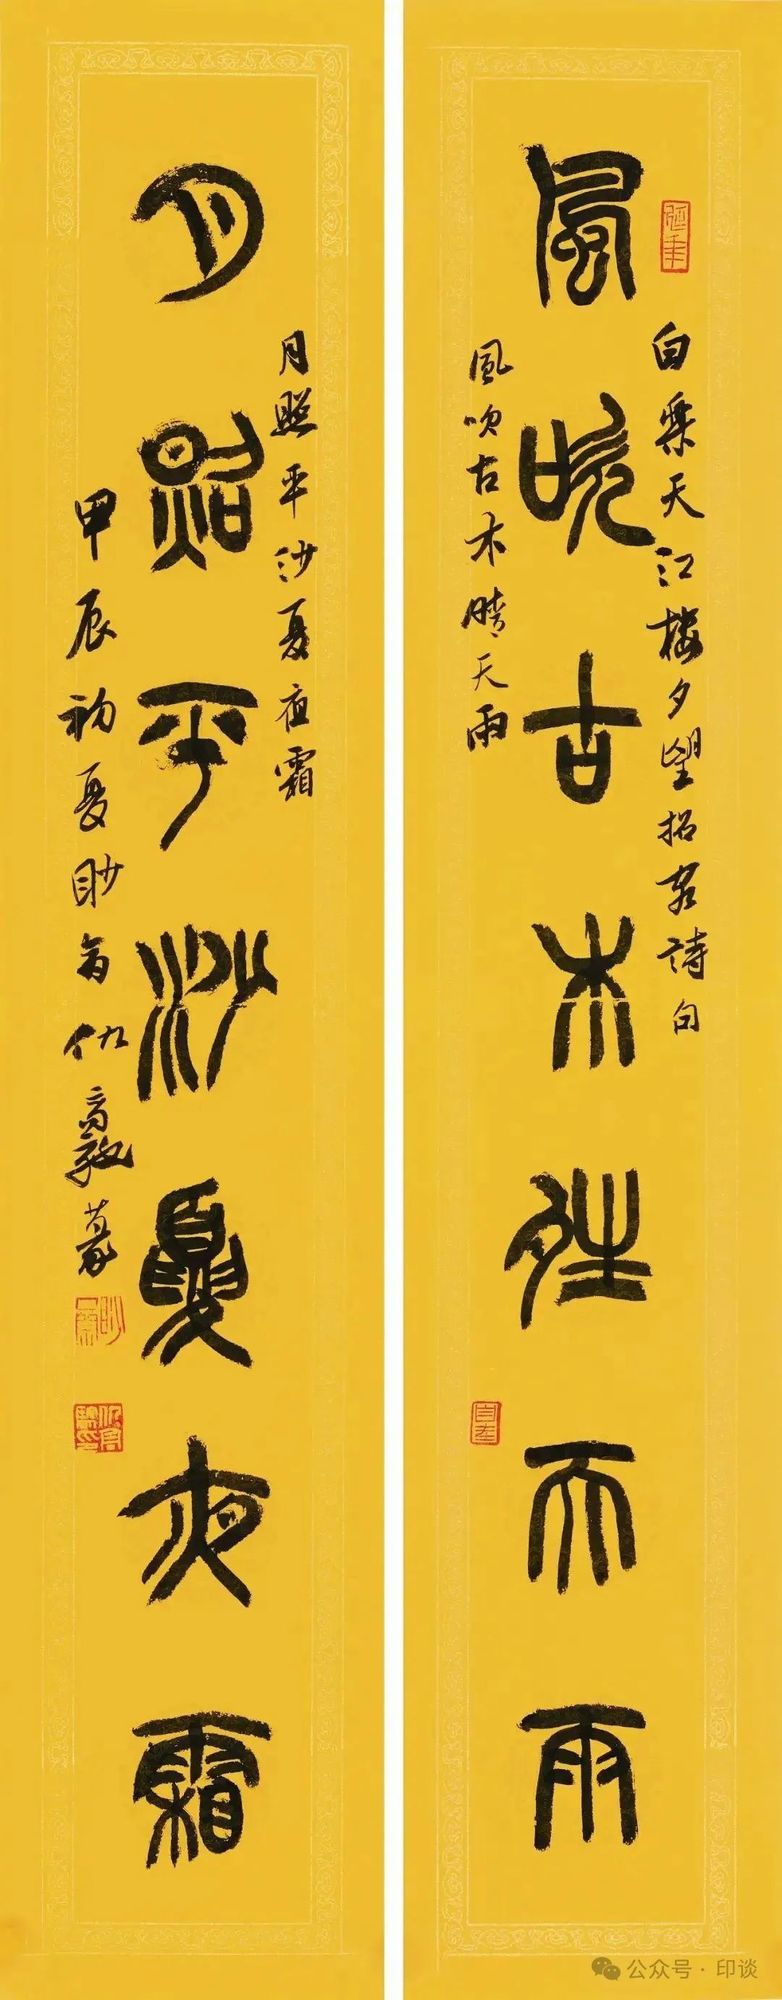 風吹古木晴天雨
白樂天江樓夕望招客詩句
風吹古木晴天雨
月照平沙夏夜霜
月照平沙夏夜霜
甲辰初夏 仇高 篆
公众号·印谈